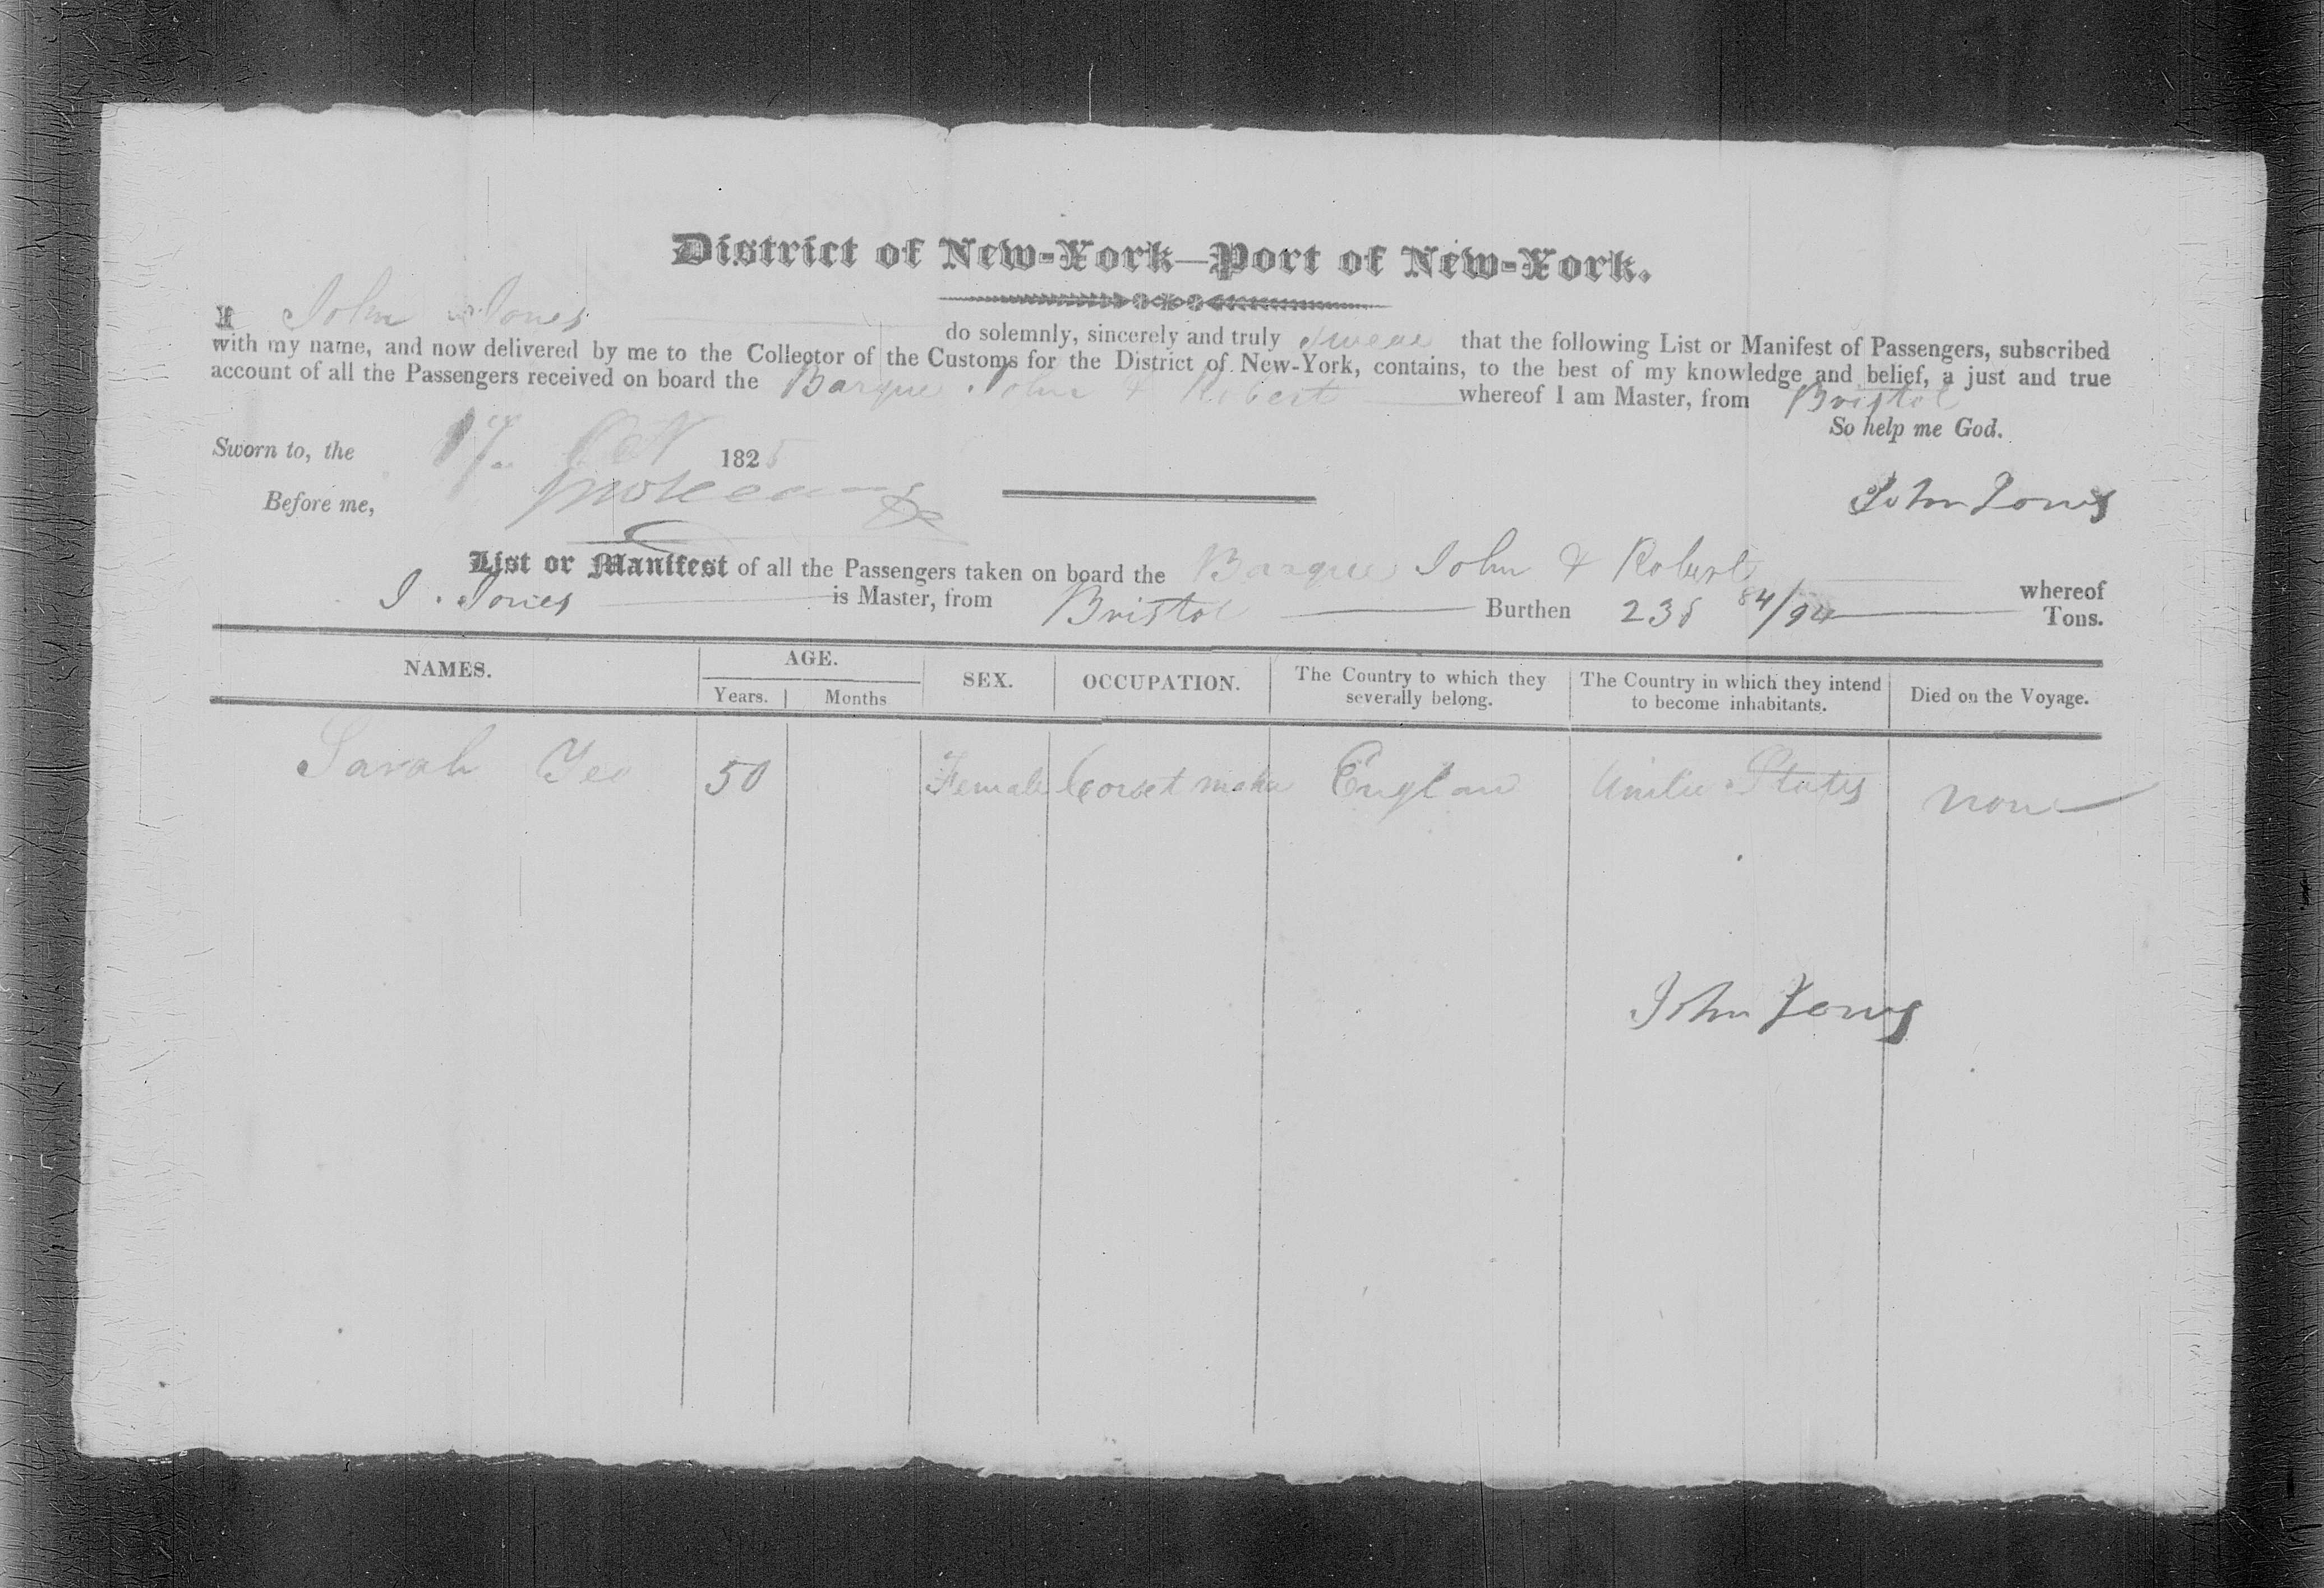 District of New-York—Port of New-York.
I John Jones do solemnly, sincerely and truly swear that the following List or Manifest of Passengers, subscribed
with my name, and now delivered by me to the Collector of the Customs for the District of New-York, contains, to the best of my knowledge and belief, a just and true
account of all the Passengers received on board the Barque John & Robert whereof I am Master, from Bristol
So help me God.
Sworn to, the 17 Oct 1825
Before me,
John Jones
List or Manifest of all the Passengers taken on board the Barque John & Robert whereof
J. Jones is Master, from Bristol Burthen 84/94 Tons.
NAMES. AGE. SEX. OCCUPATION. The Country to which they severally belong. The Country in which they intend to become inhabitants. Died on the Voyage.
Years. Months
Sarah Yeo 50 Female Corset maker England United States none
John Jones